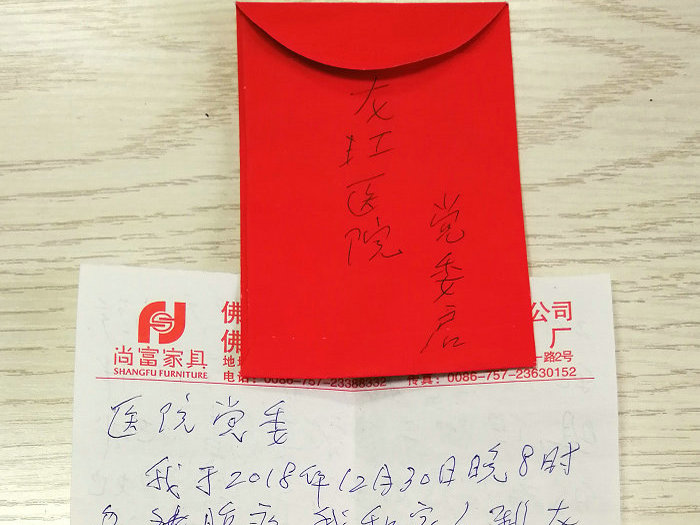 龙江医院
党委启
尚富家具
SHANGFU FURNITURE
佛 公司
佛 厂
地址 一路2号
电话：0086-757-23388332 传真：0086-757-23630152
医院党委
我于2018年12月30日晚8时